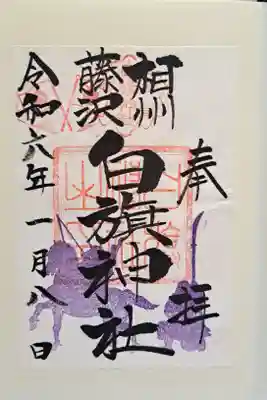 奉拝
相州
藤沢
白旗神社
令和六年一月八日